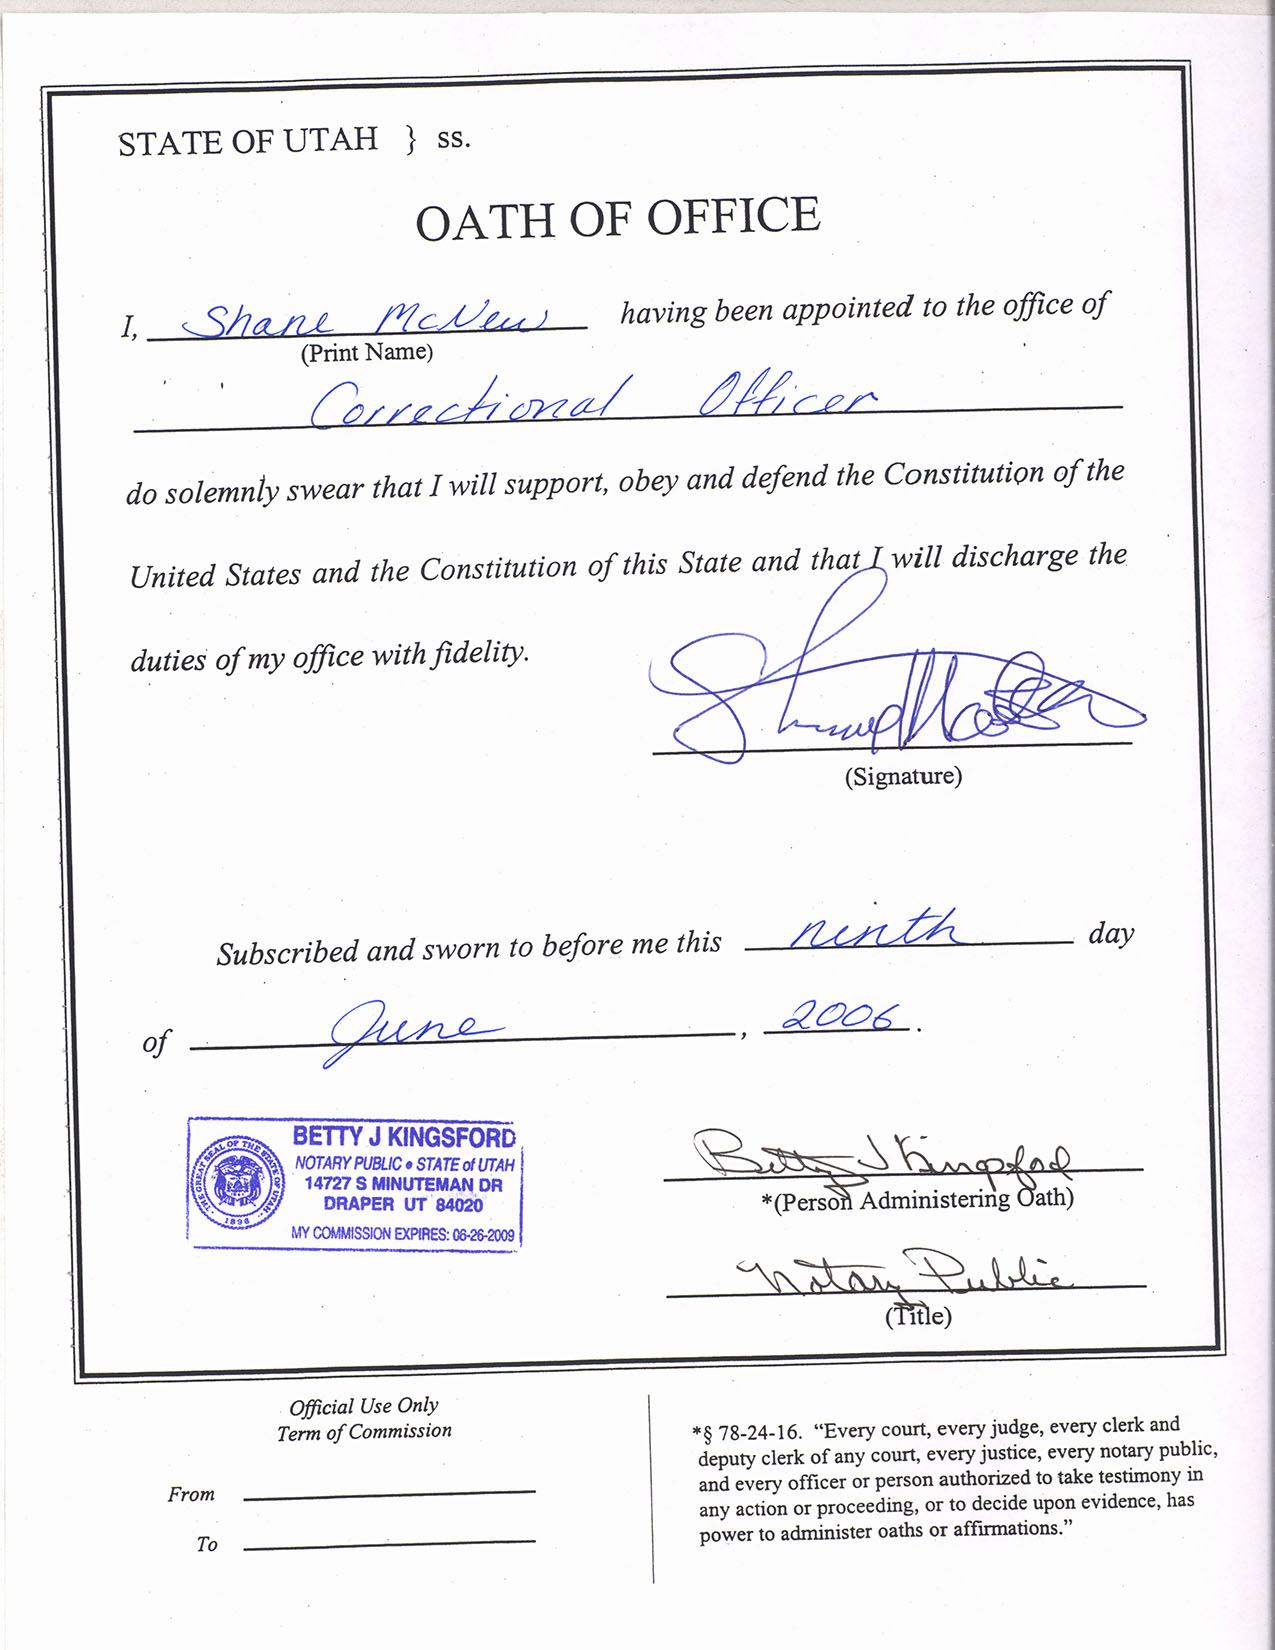 STATE OF UTAH } ss.
OATH OF OFFICE
I, Shane McNew having been appointed to the office of
(Print Name)
Correctional Officer
do solemnly swear that I will support, obey and defend the Constitution of the
United States and the Constitution of this State and that I will discharge the
duties of my office with fidelity.
(Signature)
Subscribed and sworn to before me this ninth day
of June, 2006.
BETTY J KINGSFORD
NOTARY PUBLIC • STATE of UTAH
14727 S MINUTEMAN DR
DRAPER UT 84020
MY COMMISSION EXPIRES: 06-26-2009
THE GREAT SEAL OF THE STATE OF UTAH
1896
Betty J Kingsford
*(Person Administering Oath)
Notary Public
(Title)
Official Use Only
Term of Commission
From
To
*§ 78-24-16. “Every court, every judge, every clerk and
deputy clerk of any court, every justice, every notary public,
and every officer or person authorized to take testimony in
any action or proceeding, or to decide upon evidence, has
power to administer oaths or affirmations.”